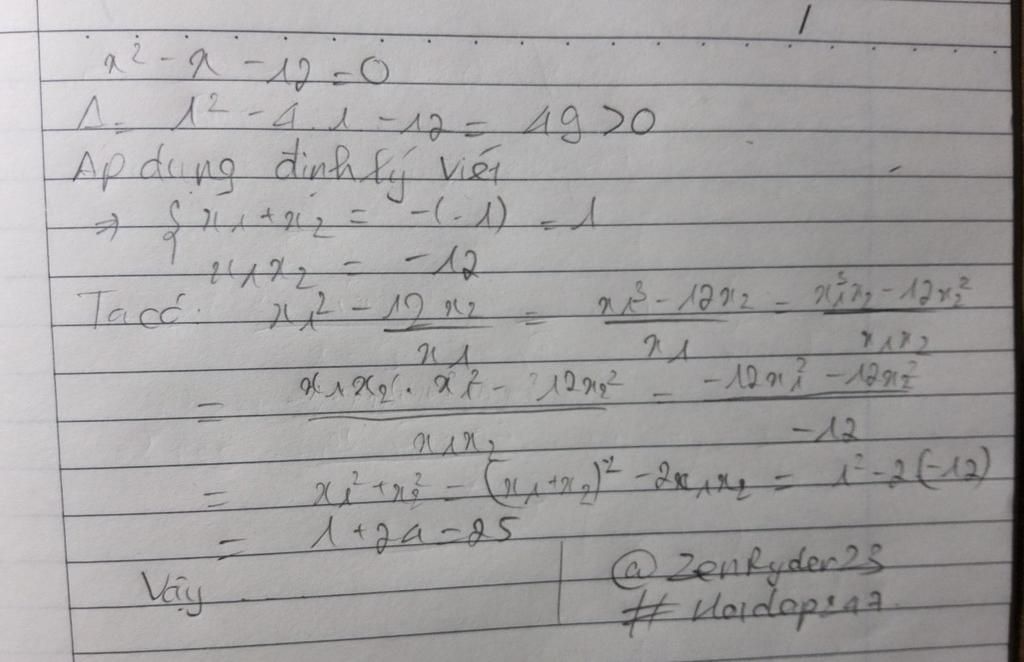 x² - x - 12 = 0
Δ = 1² - 4.1 - 12 = 49 > 0
Ap dung định lý Viét
⇒ { x₁ + x₂ = -(-1) = 1
x₁x₂ = -12
Ta có: x₁² - 12x₂/x₁ = (x₁³ - 12x₂)/x₁ = (x₁³x₂ - 12x₂²)/(x₁x₂)
= (x₁x₂ . x₁² - 12x₂²)/(x₁x₂) = (-12x₁² - 12x₂²)/(-12)
= x₁² + x₂² = (x₁ + x₂)² - 2x₁x₂ = 1² - 2(-12)
= 1 + 24 = 25
Vậy
@ZenRyder23
#